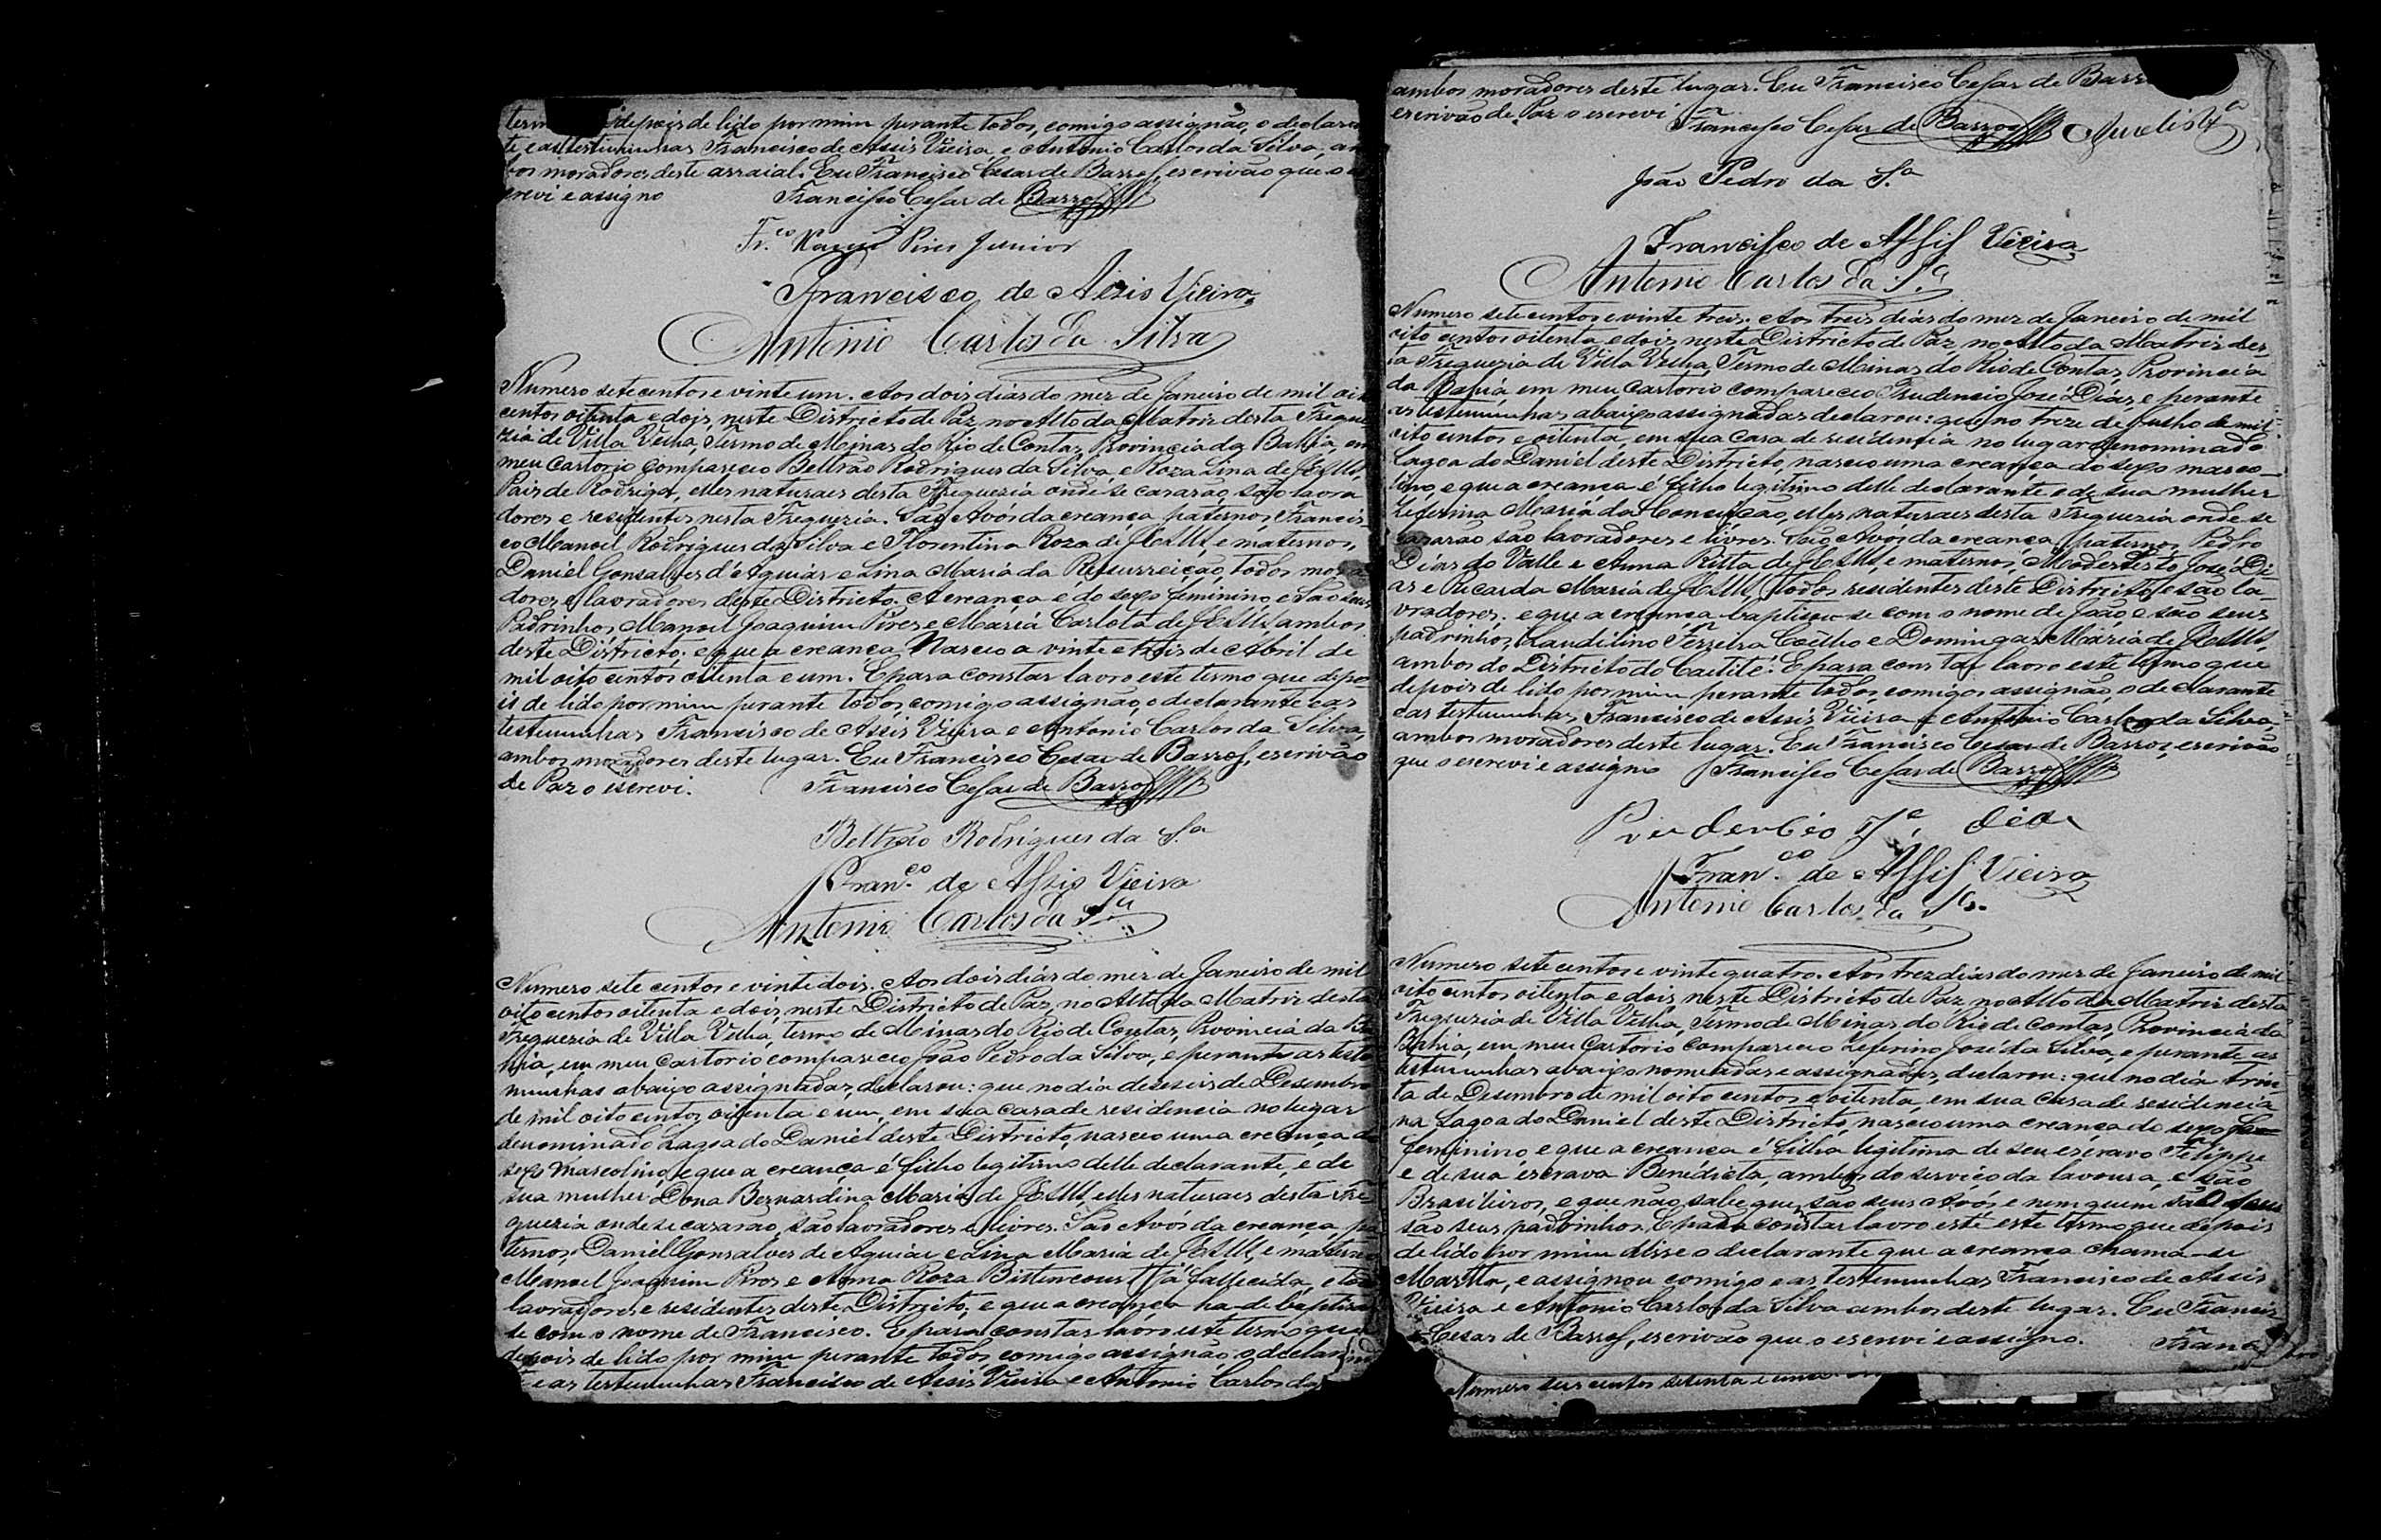 depois de lido por mim perante todos, comigo assignão, o declaran
te e as testemunhas Francisco de Assis Vieira, e Antonio Carlos da Silva, am
bos moradores deste arraial. Eu Francisco Cesar de Barros, escrivão que o
crevi e assigno Francisco Cesar de Barros
Fr.co Pires Junior
Francisco de Assis Vieira
Antonio Carlos da Silva
Numero sete centos e vinte um. Aos dois dias do mez de Janeiro de mil oit
centos oitenta e dois, neste Districto de Paz, no Alto da Matriz desta Fregue
zia de Villa Velha, Termo de Minas do Rio de Contas, Provincia da Bahia, em
meu Cartorio compareceo Beltrão Rodrigues da Silva, e Roza Lina de Jesus,
Pais de Rodriga, elles naturaes desta Freguezia onde se cazarão, são lavra
dores e residentes nesta Freguezia. São Avós da creança paternos, Francis
co Manoel Rodrigues da Silva e Florentina Roza de Jesus, e maternos,
Daniel Gonsalves d'Aguiar e Lina Maria da Ressurreição, todos mora
dores e lavradores deste Districto. A creança e do sexo feminino e são seus
Padrinhos Manoel Joaquim Pires e Maria Carlota de Jesus, ambos
deste Districto; e que a creança Nasceo a vinte e trois de Abril de
mil oito centos oitenta e um. E para constar lavro este termo que depo
is de lido por mim perante todos, comigo assignão, o declarante e as
testemunhas Francisco de Assis Vieira e Antonio Carlos da Silva,
ambos moradores deste lugar. Eu Francisco Cesar de Barros, escrivão
de Paz o escrevi. Francisco Cesar de Barros
Beltrão Rodrigues da S.a
Fran.co de Assis Vieira
Antonio Carlos da S.a
Numero sete centos e vinte dois. Aos dois dias do mez de Janeiro de mil
oito centos oitenta e dois, neste Districto de Paz, no Alto da Matriz desta
Freguezia de Villa Velha, termo de Minas do Rio de Contas, Provincia da Ba
hia, em meu Cartorio compareceo João Pedro da Silva, e perante as teste
munhas abaixo assignadas, declarou: que no dia deseseis de Desembro
de mil oito centos oitenta e um, em sua casa de residencia no lugar
denominado Lagoa do Daniel deste Districto, nasceo uma creança do
sexo mascolino, e que a creança é filho legitimo delle declarante, e de
sua mulher Dona Bernardina Maria de Jesus, elles naturaes desta Fre
guezia onde se cazarão, são lavradores e livres. São Avós da creança, pa
ternos, Daniel Gonsalves de Aguiar e Lina Maria de Jesus, e maternos
Manoel Joaquim Pires e Anna Roza Bittencourt, já fallecida, e todos
lavradores e residentes deste Districto; e que a creança ha-de baptisar
se com o nome de Francisco. E para constar lavro este termo que
depois de lido por mim perante todos, comigo assignão, o declaran
te e as testemunhas Francisco de Assis Vieira e Antonio Carlos da
ambos moradores deste lugar. Eu Francisco Cesar de Barros
escrivão de Paz o escrevi Francisco Cesar de Barros
João Pedro da S.a
Francisco de Assis Vieira
Antonio Carlos da S.a
Numero sete centos e vinte treis. Aos treis dias do mez de Janeiro de mil
oito centos oitenta e dois, neste Districto de Paz, no Alto da Matriz des-
ta Freguezia de Villa Velha, Termo de Minas do Rio de Contas, Provincia
da Bahia, em meu Cartorio compareceo Prudencio José Dias, e perante
as testemunhas abaixo assignadas declarou: que no treze de Junho de mil
oito centos e oitenta, em sua casa de residencia no lugar denominado
Lagoa do Daniel deste Districto, nasceo uma creança do sexo masco-
lino, e que a creança é filho legitimo delle declarante, e de sua mulher
Zeferina Maria da Conceição, elles naturaes desta Freguezia onde se
cazarão são lavradores e livres. São Avós da creança, paternos, Pedro
Dias do Valle e Anna Ritta de Jesus, e maternos, Modesto José Di-
as e Ricarda Maria de Jesus, todos residentes deste Districto, e são la-
vradores; e que a creança baptisou-se com o nome de João, e são seus
padrinhos, Laudilino Ferreira Coelho e Domingas Maria de Jesus,
ambos do Districto do Caetité. E para constar lavro este termo que
depois de lido por mim perante todos, comigos assignão, o declarante
e as testemunhas, Francisco de Assis Vieira e Antonio Carlos da Silva,
ambos moradores deste lugar. Eu Francisco Cesar de Barros, escrivão
que o escrevi e assigno Francisco Cesar de Barros
Prudencio Je. dias
Fran.co de Assis Vieira
Antonio Carlos da Sa.
Numero sete centos e vinte quatro. Aos trez dias do mez de Janeiro de mil
oito centos oitenta e dois, neste Districto de Paz, no Alto da Matriz desta
Freguezia de Villa Velha, Termo de Minas do Rio de Contas, Provincia da
Bahia, em meu Cartorio compareceo Zeferino José da Silva, e perante as
testemunhas abaixo nomeadas e assignadas, declarou: que no dia trin
ta de Desembro de mil oito centos e oitenta, em sua casa de residencia
na Lagoa do Daniel deste Districto, nasceo uma creança do sexo
feminino, e que a creança é filha legitima de seu escravo Felippe
e de sua escrava Benedicta, ambos do serviço da lavoura, e são
Brasileiros, e que não sabe quem são seus Avós, e nem quem
são seus padrinhos. E para constar lavro este este termo que depois
de lido por mim disse o declarante que a creança chama-se
Martha, e assignou comigo e as testemunhas Francisco de Assis
Vieira e Antonio Carlos da Silva ambos deste lugar. Eu Francis
Cesar de Barros, escrivão que o escrevi e assigno. Franc
Numero seis centos setenta e um